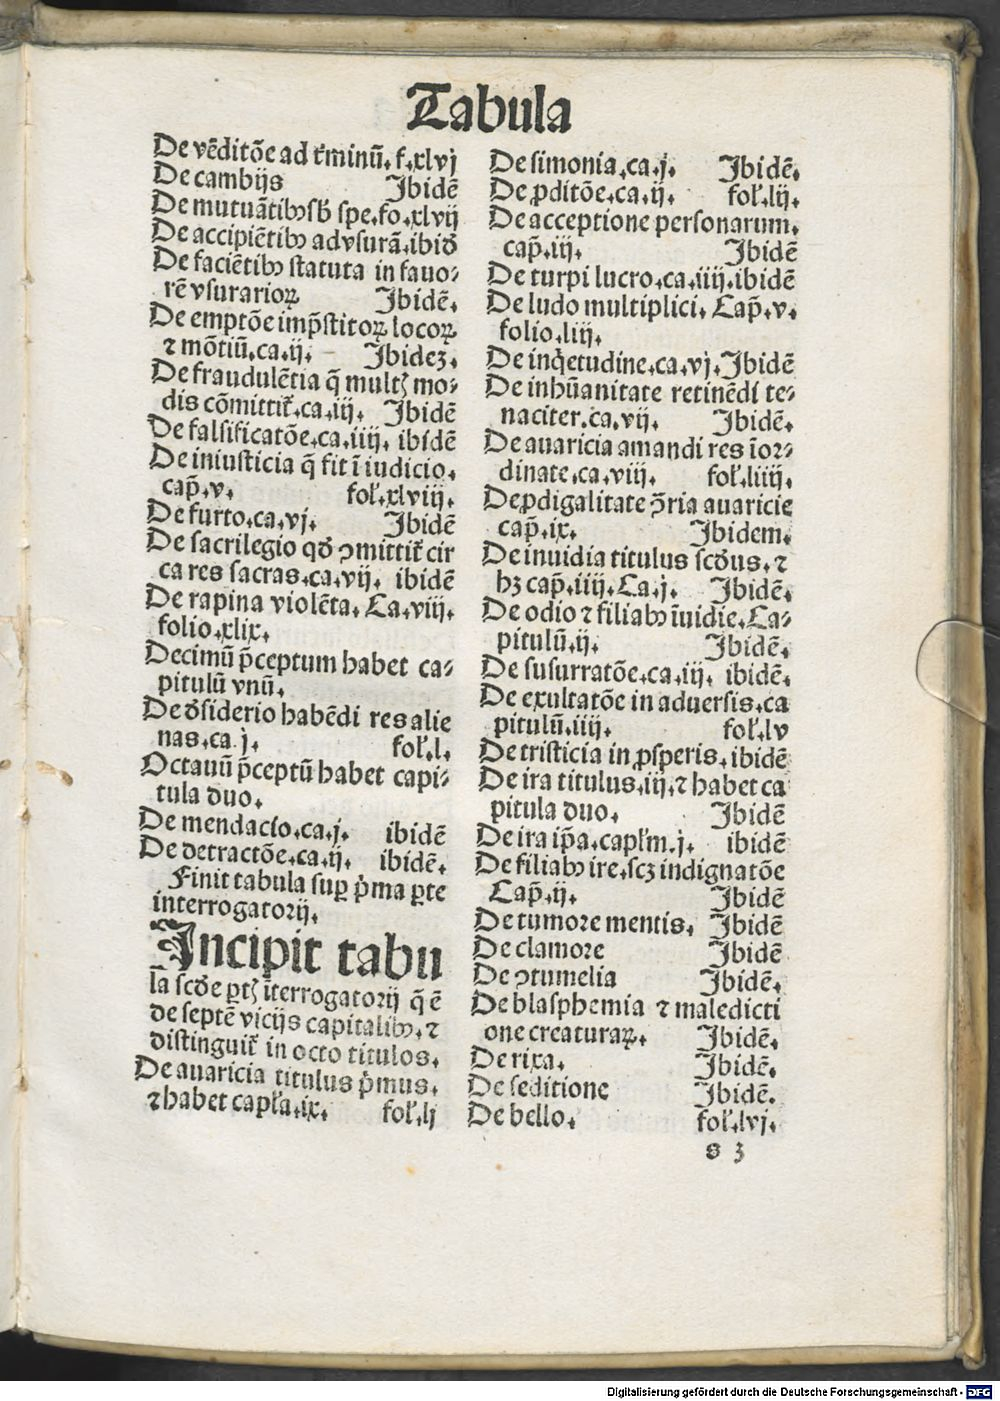 Tabula
De vẽditõe ad t̃minũ. f. xlvj
De cambijs Ibidẽ
De mutuãtibꝰ sb̃ spe. fo. xlvij
De accipiẽtibꝰ ad vsurã. ibid̃
De faciẽtibꝰ statuta in fauo⸗
rẽ vsurarioꝝ Ibidẽ.
De emptõe imp̃stitoꝝ locoꝝ
⁊ mõtiũ. ca. ij. Ibidez.
De fraudulẽtia q̃ multꝫ mo⸗
dis cõmittit̃. ca. iij. Ibidẽ
De falsificatõe. ca. iiij. ibidẽ
De iniusticia q̃ fit ĩ iudicio.
cap̃. v. fol̃. xlviij.
De furto. ca. vj. Ibidẽ
De sacrilegio qd̃ ꝯmittit̃ cir
ca res sacras. ca. vij. ibidẽ
De rapina violẽta. Ca. viij.
folio. xlix.
Decimũ p̃ceptum habet ca⸗
pitulũ vnũ.
De d̃siderio habẽdi res alie
nas. ca. j. fol̃. l.
Octauũ p̃ceptũ habet capi⸗
tula duo.
De mendacio. ca. j. ibidẽ
De detractõe. ca. ij. ibidẽ.
Finit tabula suꝑ p̃ma ꝑte
interrogatorij.
Incipit tabu
la scd̃e ꝑtꝫ ĩterrogatorij q̃ ẽ
de septẽ vicijs capitalibꝰ. ⁊
distinguit̃ in octo titulos.
De auaricia titulus p̃mus.
⁊ habet capl̃a. ix. fol̃. lj
De simonia. ca. j. Ibidẽ.
De ꝓditõe. ca. ij. fol̃. lij.
De acceptione personarum.
cap̃. iij. Ibidẽ
De turpi lucro. ca. iiij. ibidẽ
De ludo multiplici. Cap̃. v.
folio. liij.
De inq̃etudine. ca. vj. Ibidẽ
De inhũanitate retinẽdi te⸗
naciter. ca. vij. Ibidẽ.
De auaricia amandi res ĩor⸗
dinate. ca. viij. fol̃. liiij.
De ꝓdigalitate ꝯ̃ria auaricie
cap̃. ix. Ibidem.
De inuidia titulus scd̃us. ⁊
hꝫ cap̃. iiij. Ca. j. Ibidẽ.
De odio ⁊ filiabꝰ ĩuidie. Ca⸗
pitulũ. ij. Ibidẽ.
De susurratõe. ca. iij. ibidẽ.
De exultatõe in aduersis. ca
pitulũ. iiij. fol̃. lv
De tristicia in ꝓsperis. ibidẽ
De ira titulus. iij. ⁊ habet ca
pitula duo. Ibidẽ
De ira ip̃a. capl̃m. j. ibidẽ
De filiabꝰ ire. scꝫ indignatõe
Cap̃. ij. Ibidẽ
De tumore mentis. Ibidẽ
De clamore Ibidẽ
De ꝯtumelia Ibidẽ.
De blasphemia ⁊ maledicti
one creaturaꝝ. Ibidẽ.
De rixa. Ibidẽ.
De seditione Ibidẽ.
De bello. fol̃. lvj.
s 3
Digitalisierung gefördert durch die Deutsche Forschungsgemeinschaft - DFG